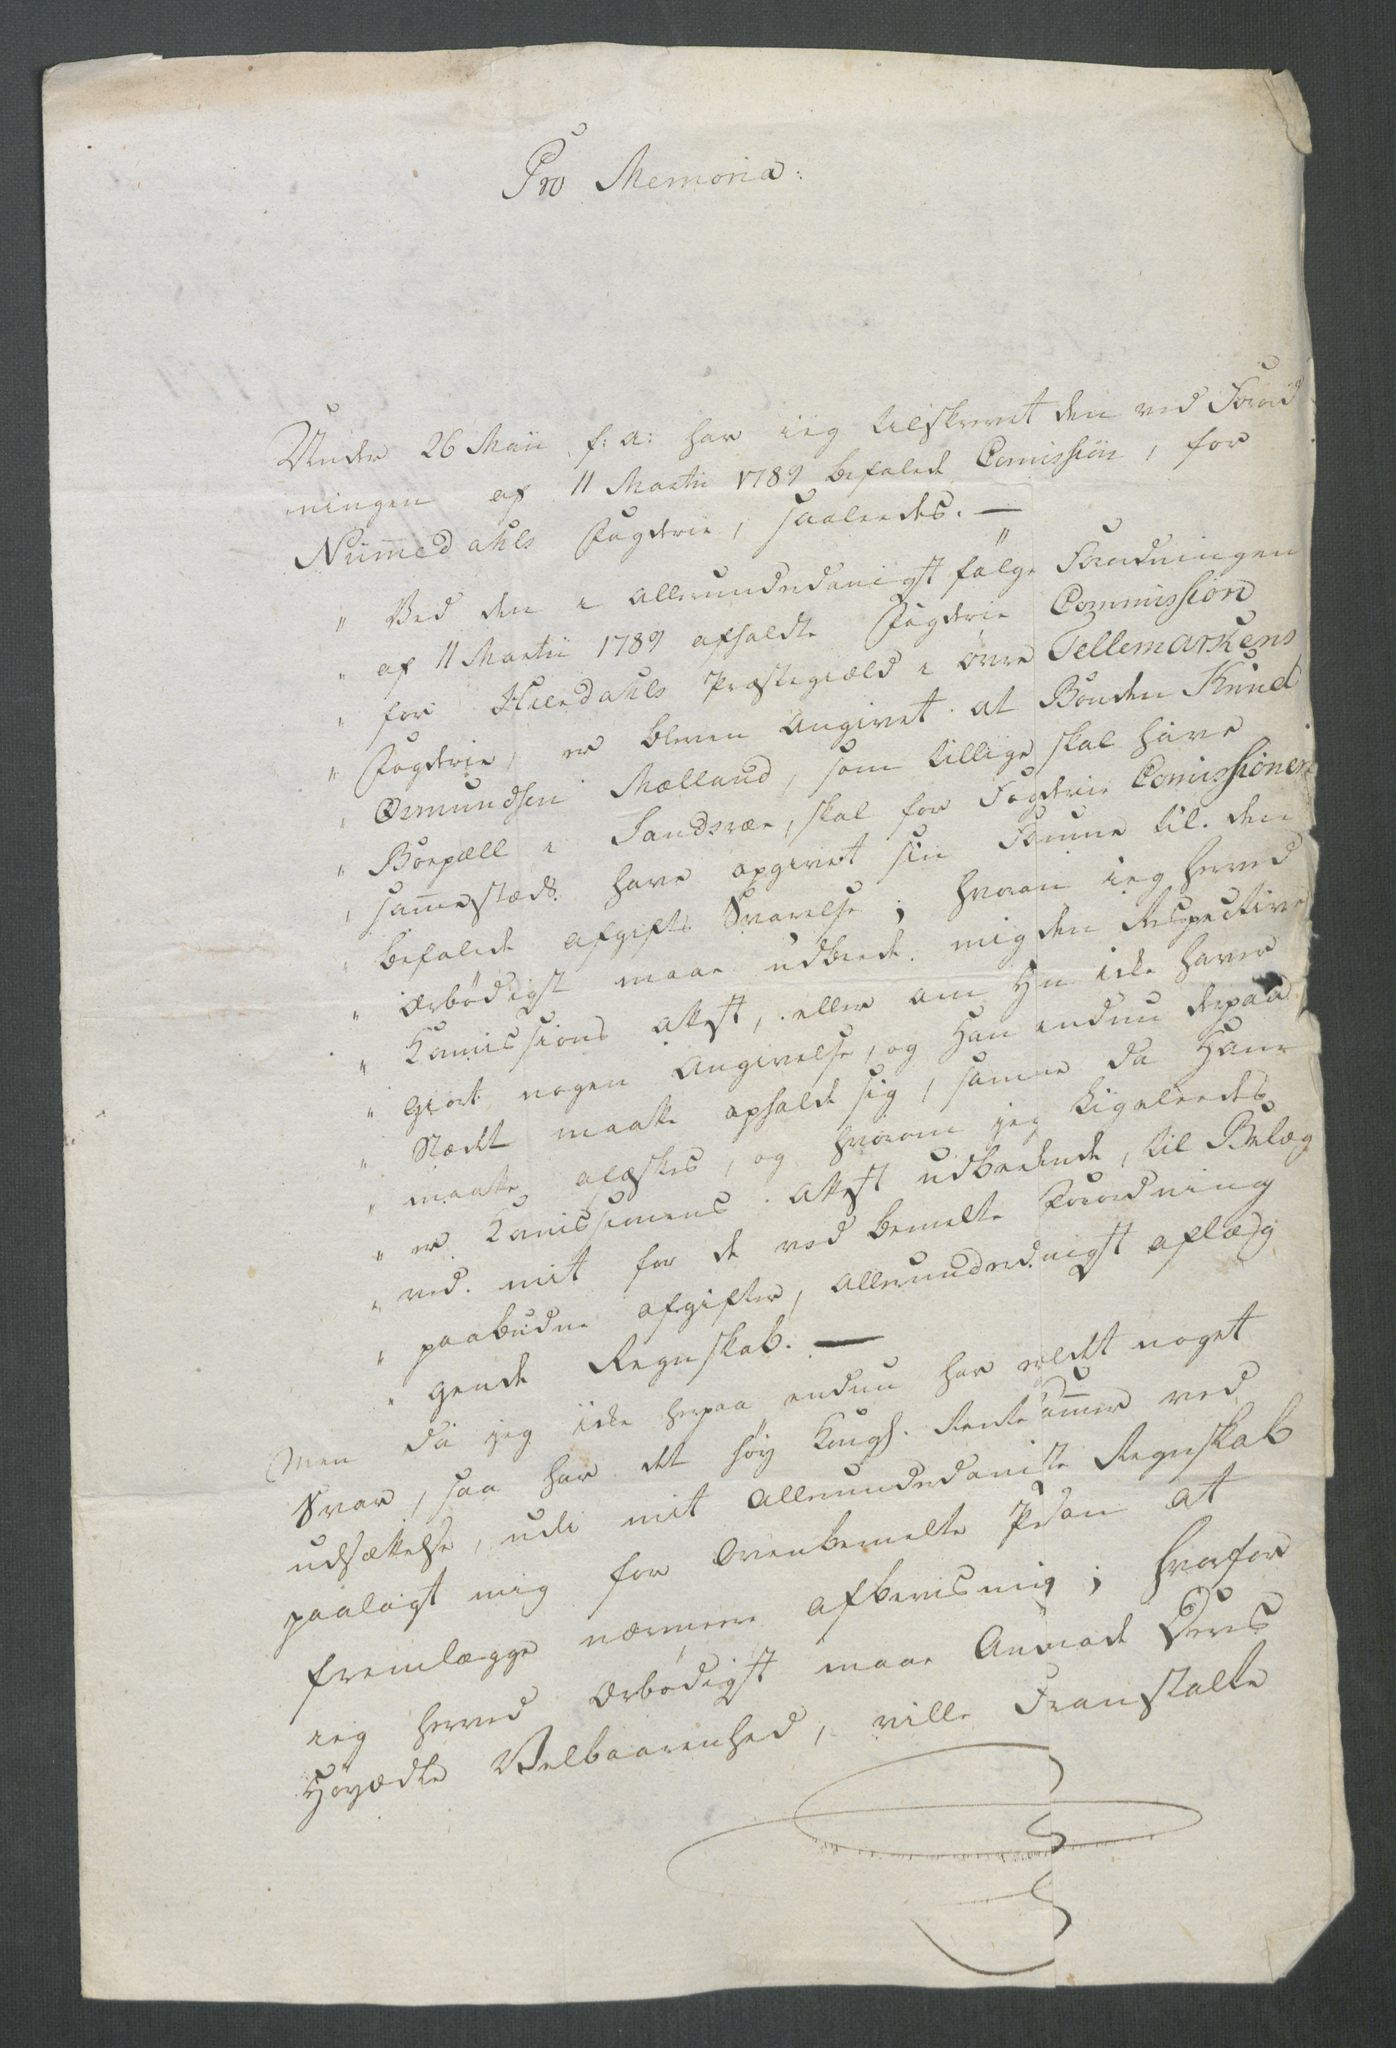 Pro Memoria:
Under 26 Maii f: A: har ieg tilskrevet den ved Forord
ningen af 11 Martii 1789 befalede Comission, for
Nummedahls Fogderie, saaleedes. —
" Ved den i allerunderdanigst følge Forordningen
" af 11 Martii 1789 afholdte Fogderie Commission
" for Hierdahls Præstegiæld i Øvre Tellemarkens
" Fogderie, er bleven angivet at Bonden Knud
" Ormundsen Mælland, som tillige skal have
" Boepæll i Sandsvær, skal for Fogderie Comissionen
" sammestæds have opgivet sin Formue til den
" befalede afgifts Svarelse; hvorom ieg herved
" ærbødigst maae udbede mig den Respective
" Komissions Attest, eller om Hn ikke haver
" giort nogen Angivelse, og Han endnu derpaa
" Stædet maatte opholde sig, samme da Ham
" maatte aflæskes, og hvorom jeg ligeleedes
" er Komissionens Attest udbedende, til Belæg
" ved mit for de ved bemelte Forordning
" paabudne afgifter, allerunderdanigst aflæg
" gende Regnskab. —
Men da jeg ikke herpaa endnu har erholdt noget
Svar, saa har det høy Kongl. Rentekammer ved
udsættelse, udi mit allerunderdanigste Regnskab
paalagt mig for Ovenbemelte Person at
fremlægge nærmere afbevisning; hvorfor
ieg herved ærbødigst maae Anmode Deres
Høyædle Velbaarenhed, ville Foranstalte